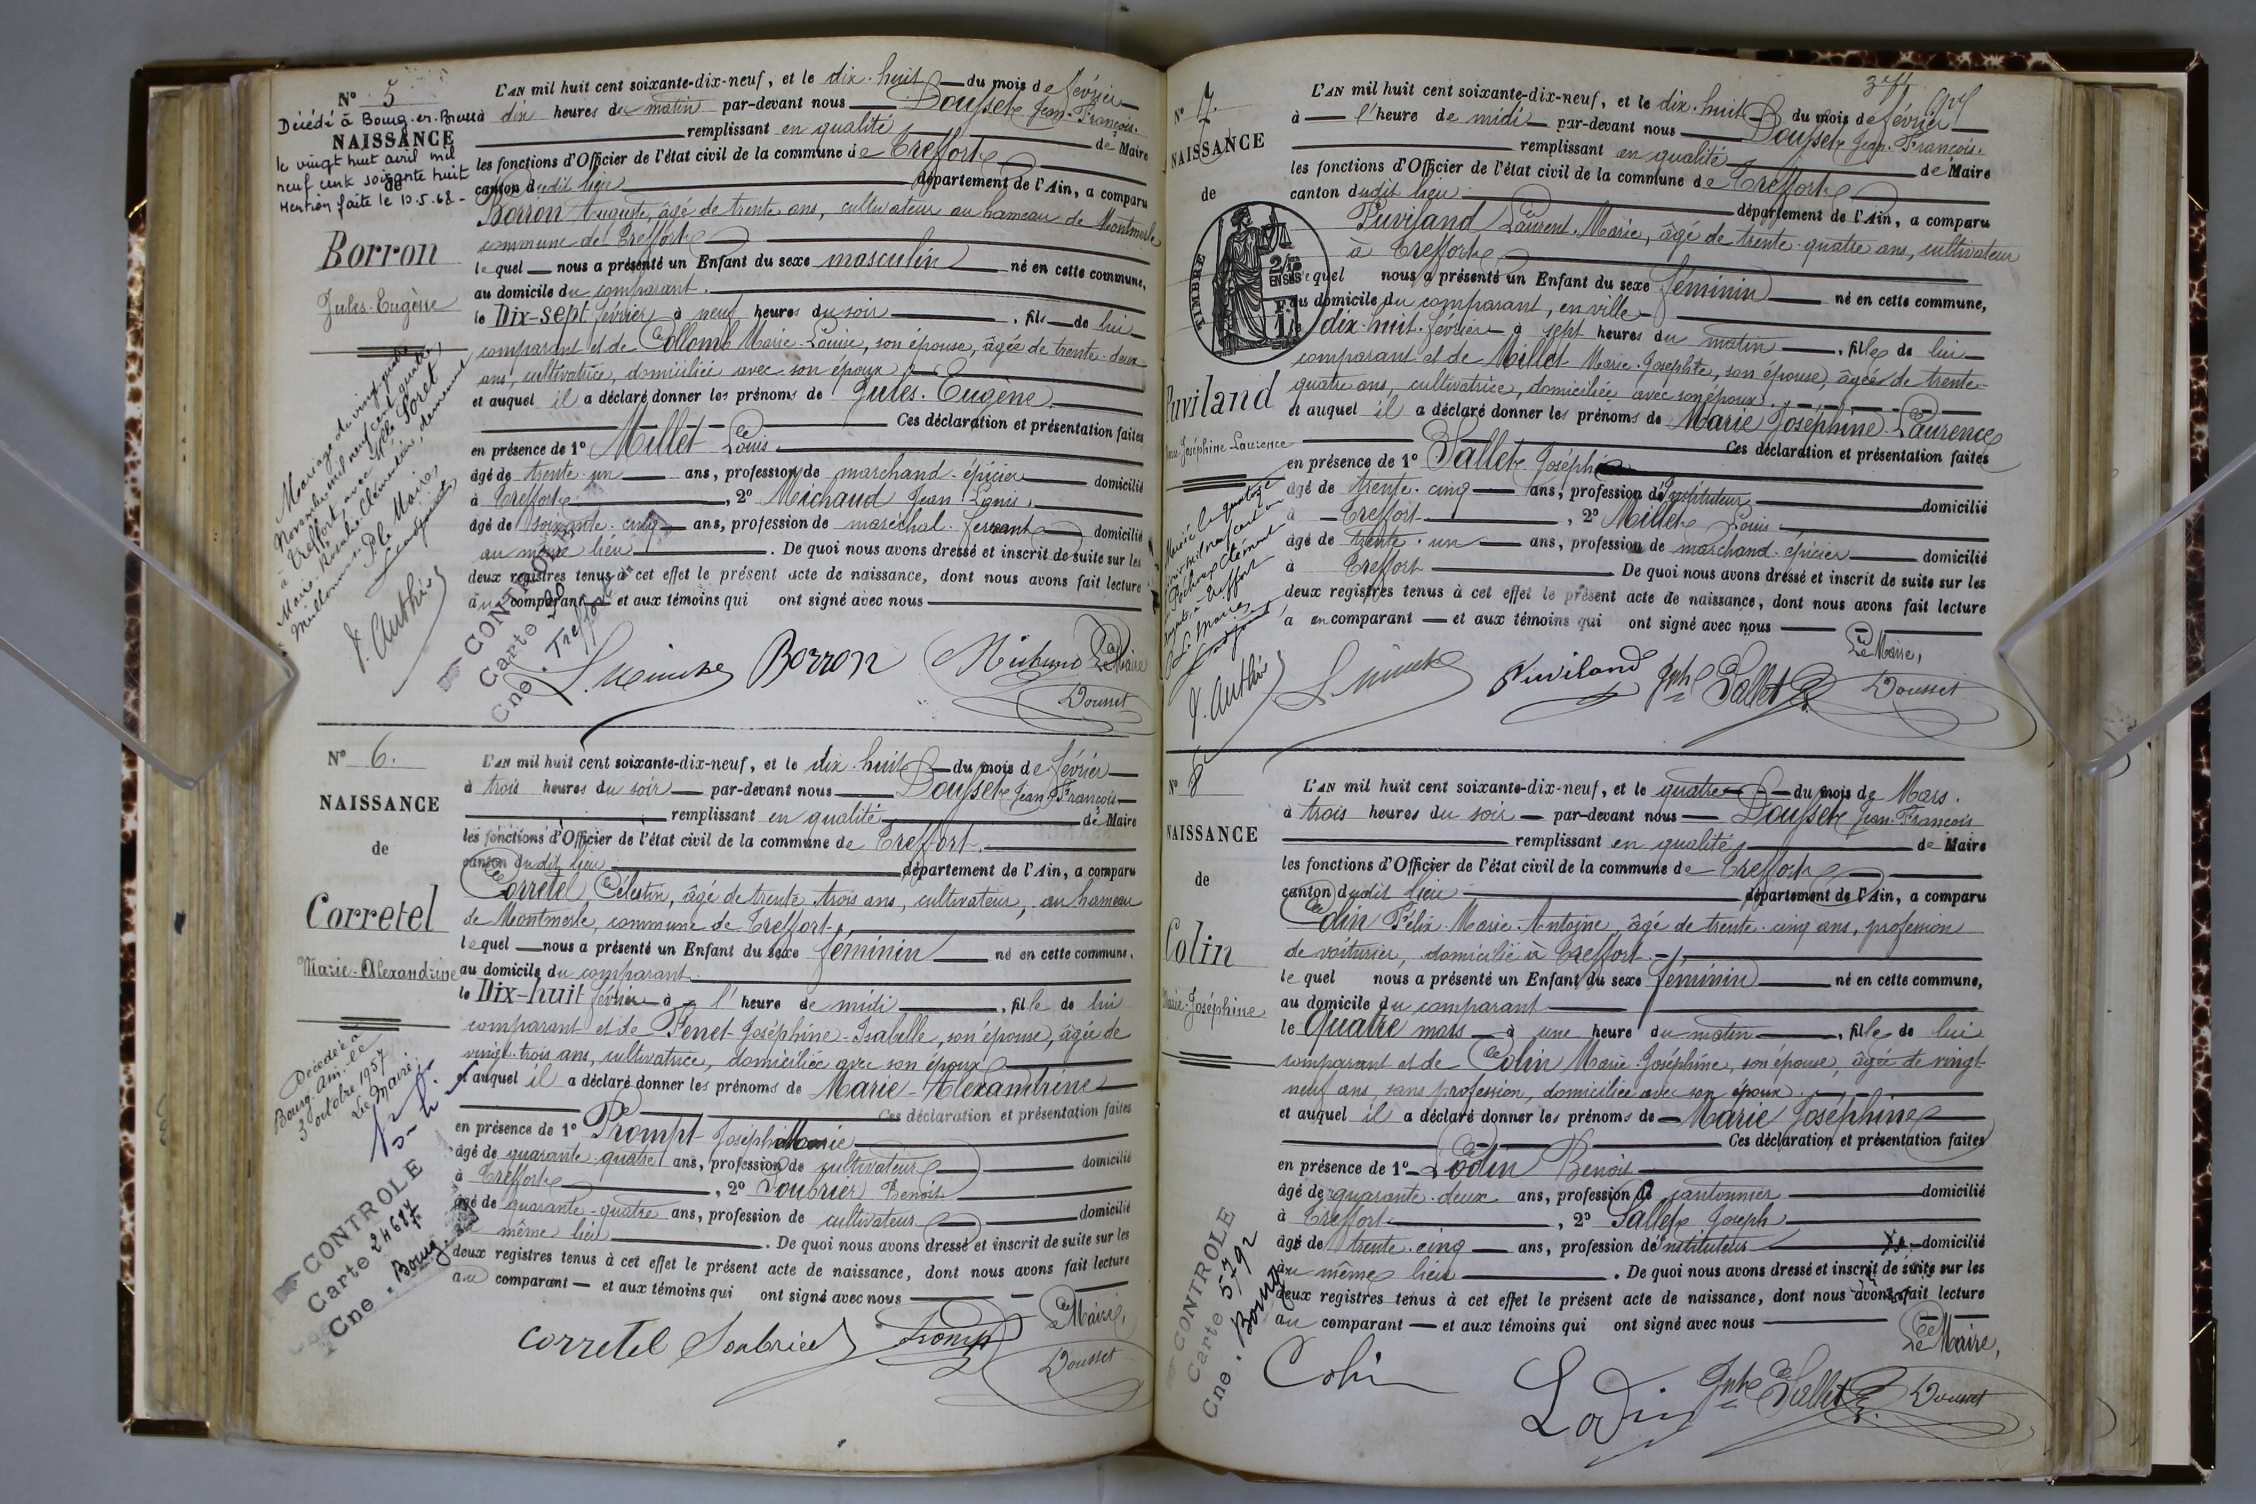 N° 5
Décédé à Bourg-en-Bresse
NAISSANCE
le vingt huit avril mil
neuf cent soixante huit
de
Mention faite le 10.5.68-
Borron
Jules-Eugène
Mariage du vingt quatre
Novembre mil neuf cent quatre,
à Treffort, avec Melle Loret
Marie Rosalie Clémentine, demeurant
Pr le Maire,
J. Authier
L'AN mil huit cent soixante-dix-neuf, et le dix-huit du mois de février
à dix heures du matin par-devant nous Dousset Jean-François
remplissant en qualité de Maire
les fonctions d'Officier de l'état civil de la commune de Treffort
canton dudit lieu département de l'Ain, a comparu
Borron Auguste, âgé de trente ans, cultivateur au hameau de Montmerle
commune de Treffort
lequel nous a présenté un Enfant du sexe masculin né en cette commune,
au domicile du comparant.
le Dix-sept février à neuf heures du soir, fils de lui
comparant et de Collomb Marie-Louise, son épouse, âgée de trente-deux
ans, cultivatrice, domiciliée avec son époux,
et auquel il a déclaré donner les prénoms de Jules-Eugène.
Ces déclaration et présentation faites
en présence de 1° Millet Louis
âgé de trente-un ans, profession de marchand-épicier domicilié
à Treffort, 2° Michaud Jean-Denis,
âgé de soixante-cinq ans, profession de maréchal-ferrant domicilié
au même lieu. De quoi nous avons dressé et inscrit de suite sur les
deux registres tenus à cet effet le présent acte de naissance, dont nous avons fait lecture
au comparant et aux témoins qui ont signé avec nous
CONTROLE
Carte 20
Cne. Treffort
Borron Michaud Le Maire
Dousset
N° 6.
NAISSANCE
de
Corretel
Marie-Alexandrine
Décédée à
Bourg. Ain. le
3 octobre 1957
Le Maire,
CONTROLE
Carte 24687
Cne. Bourg.
L'AN mil huit cent soixante-dix-neuf, et le dix-huit du mois de février
à trois heures du soir par-devant nous Dousset Jean-François
remplissant en qualité de Maire
les fonctions d'Officier de l'état civil de la commune de Treffort.
canton dudit lieu département de l'Ain, a comparu
Corretel Célestin, âgé de trente-trois ans, cultivateur, au hameau
de Montmerle, commune de Treffort,
lequel nous a présenté un Enfant du sexe féminin né en cette commune,
au domicile du comparant.
le Dix-huit février à l'heure de midi, fille de lui
comparant et de Perret Joséphine-Isabelle, son épouse, âgée de
vingt-trois ans, cultivatrice, domiciliée avec son époux
et auquel il a déclaré donner les prénoms de Marie-Alexandrine
Ces déclaration et présentation faites
en présence de 1° Prompt Joseph Marie
âgé de quarante-quatre ans, profession de cultivateur domicilié
à Treffort, 2° Soubrier Benoit
âgé de quarante-quatre ans, profession de cultivateur domicilié
même lieu. De quoi nous avons dressé et inscrit de suite sur les
deux registres tenus à cet effet le présent acte de naissance, dont nous avons fait lecture
au comparant et aux témoins qui ont signé avec nous
Le Maire,
corretel Soubrier Prompt Dousset
N° 7.
NAISSANCE
de
TIMBRE
2/10
EN SUS
Puviland
Marie-Joséphine-Laurence
J. Authier
L'AN mil huit cent soixante-dix-neuf, et le dix-huit du mois de février
à l'heure de midi par-devant nous Dousset Jean-François.
remplissant en qualité de Maire
les fonctions d'Officier de l'état civil de la commune de Treffort
canton dudit lieu département de l'Ain, a comparu
Puviland Laurent-Marie, âgé de trente-quatre ans, cultivateur
à Treffort
lequel nous a présenté un Enfant du sexe féminin né en cette commune,
au domicile du comparant, en ville
dix-huit février à sept heures du matin, fille de lui
comparant et de Millet Marie-Josephte, son épouse, âgée de trente-
quatre ans, cultivatrice, domiciliée avec son époux.
et auquel il a déclaré donner les prénoms de Marie Joséphine-Laurence
Ces déclaration et présentation faites
en présence de 1° Sallet Joseph
âgé de trente-cinq ans, profession d'Instituteur domicilié
à Treffort, 2° Millet Louis
âgé de trente-un ans, profession de marchand-épicier domicilié
à Treffort. De quoi nous avons dressé et inscrit de suite sur les
deux registres tenus à cet effet le présent acte de naissance, dont nous avons fait lecture
au comparant et aux témoins qui ont signé avec nous
Le Maire,
Puviland Jph Sallet Dousset
N° 8
NAISSANCE
de
Colin
Marie-Joséphine
CONTROLE
Carte 5792
Cne. Bourg
L'AN mil huit cent soixante-dix-neuf, et le quatre du mois de Mars.
à trois heures du soir par-devant nous Dousset Jean-François
remplissant en qualité de Maire
les fonctions d'Officier de l'état civil de la commune de Treffort
canton dudit lieu département de l'Ain, a comparu
Colin Félix-Marie-Antoine, âgé de trente-cinq ans, profession
de voiturier, domicilié à Treffort
lequel nous a présenté un Enfant du sexe féminin né en cette commune,
au domicile du comparant
le Quatre mars à une heure du matin, fille de lui
comparant et de Colin Marie-Joséphine, son épouse, âgée de vingt-
neuf ans, sans profession, domiciliée avec son époux.
et auquel il a déclaré donner les prénoms de Marie Joséphine
Ces déclaration et présentation faites
en présence de 1° Lodin Benoit
âgé de quarante-deux ans, profession de cantonnier domicilié
à Treffort, 2° Sallet Joseph
âgé de trente-cinq ans, profession d'Instituteur domicilié
au même lieu. De quoi nous avons dressé et inscrit de suite sur les
deux registres tenus à cet effet le présent acte de naissance, dont nous avons fait lecture
au comparant et aux témoins qui ont signé avec nous
Le Maire,
Colin Lodin Jph Sallet Dousset